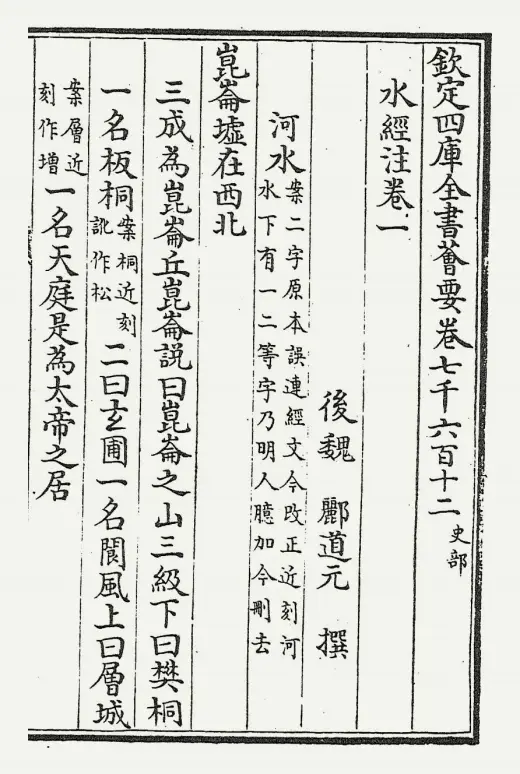 欽定四庫全書薈要卷七千六百十二 史部
水經注卷一
後魏 酈道元 撰
河水案二字原本誤連經文今改正近刻河
水下有一二等字乃明人臆加今刪去
崑崙墟在西北
三成為崑崙丘崑崙說曰崑崙之山三級下曰樊桐
一名板桐案桐近刻訛作松二曰𤣥圃一名閬風上曰層城
案層近刻作增一名天庭是為太帝之居